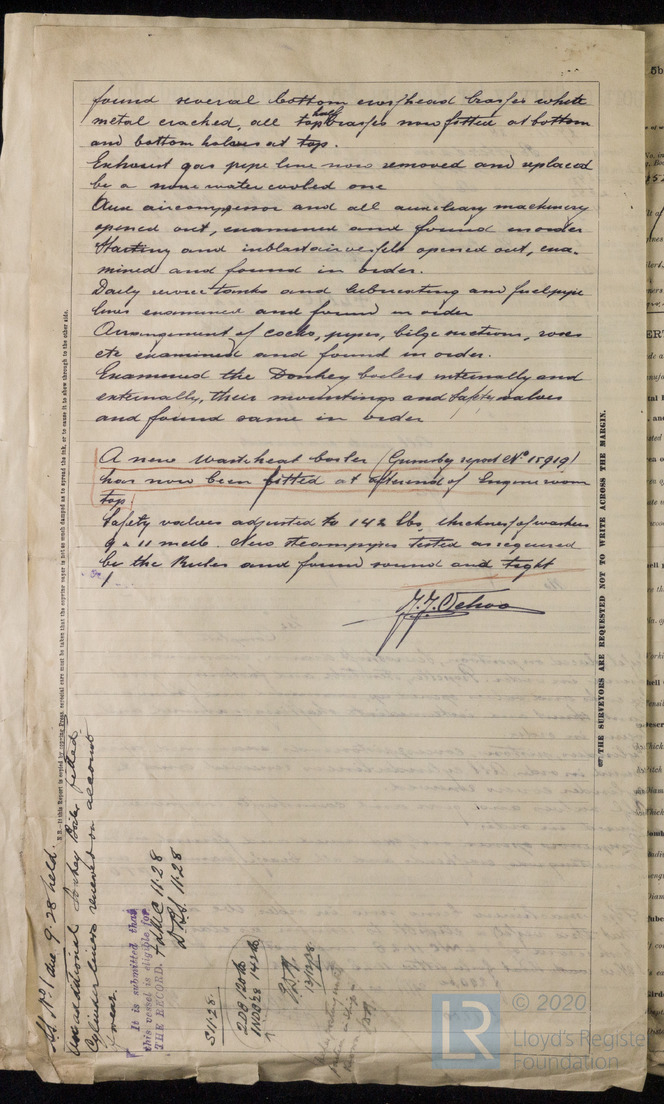 found several bottom crosshead brasses white
metal cracked, all top half brasses now fitted at bottom
and bottom halves at top.
Exhaust gas pipe line now removed and replaced
by a none water cooled one
Aux aircompressor and all auxiliary machinery
opened out, examined and found in order
Starting and inblastair vessels opened out, exa-
mined and found in order.
Daily service tanks and lubricating and fuelpipe
lines examined and found in order
Arrangement of cocks, pipes, bilge suctions, roses
etc examined and found in order.
Examined the Donkey boilers internally and
externally, their mountings and safety valves
and found same in order
A new wasteheat boiler (Grimsby report No 15919)
has now been fitted at afterend of Engine room
top
Safety valves adjusted to 142 lbs, thickness of washers
9 & 11 m. New steampipes tested as required
by the Rules and found sound and tight
N.B.—If this Report is copied by copying Press, especial care must be taken that the copying paper is not so much damped as to spread the ink, or to cause it to show through to the other side.
THE SURVEYORS ARE REQUESTED NOT TO WRITE ACROSS THE MARGIN.
S.S. No 1 due 9.28 held.
An additional Donkey Boiler fitted.
Cylinder liners renewed on account
of wear.
It is submitted that
this vessel is eligible for
THE RECORD. + LMC 11.28
D.B.S. 11.28
S 11.28
2DB 120 lb
1NDB 28 142 lb
13/12/28
© 2020
LR
Lloyd's Register
Foundation